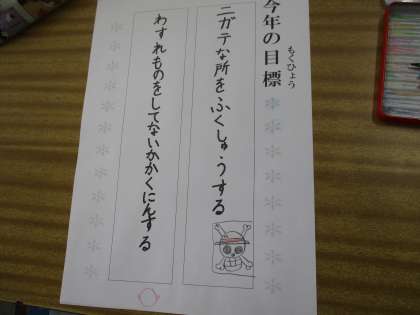 今年の目標
もくひょう
ニガテな所をふくしゅうする
わすれものをしてないかかくにんする